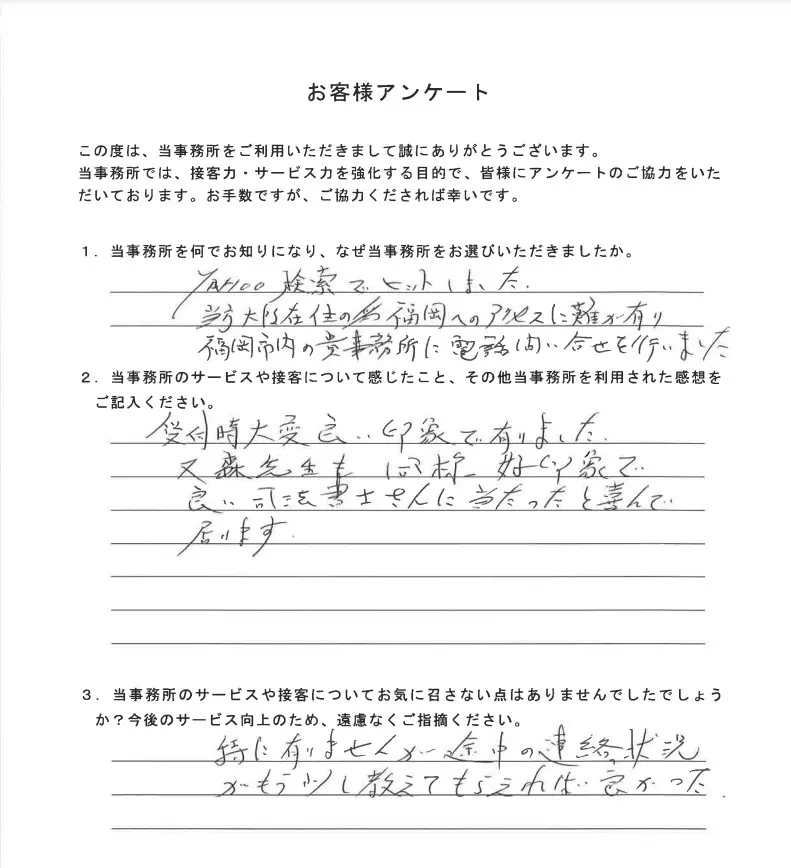 お客様アンケート
この度は、当事務所をご利用いただきまして誠にありがとうございます。
当事務所では、接客力・サービス力を強化する目的で、皆様にアンケートのご協力をいた
だいております。お手数ですが、ご協力くだされば幸いです。
１．当事務所を何でお知りになり、なぜ当事務所をお選びいただきましたか。
YAHOO検索でヒットしました.
当方大阪在住の為福岡へのアクセスに難が有り
福岡市内の貴事務所に電話問い合せを行いました
２．当事務所のサービスや接客について感じたこと、その他当事務所を利用された感想を
ご記入ください。
受付時大変良い印象で有りました.
又森先生も同様好印象で
良い司法書士さんに当たったと喜んで
居ります.
３．当事務所のサービスや接客についてお気に召さない点はありませんでしたでしょう
か？今後のサービス向上のため、遠慮なくご指摘ください。
特に有りませんが途中の連絡状況
がもう少し教えてもらえれば良かった.